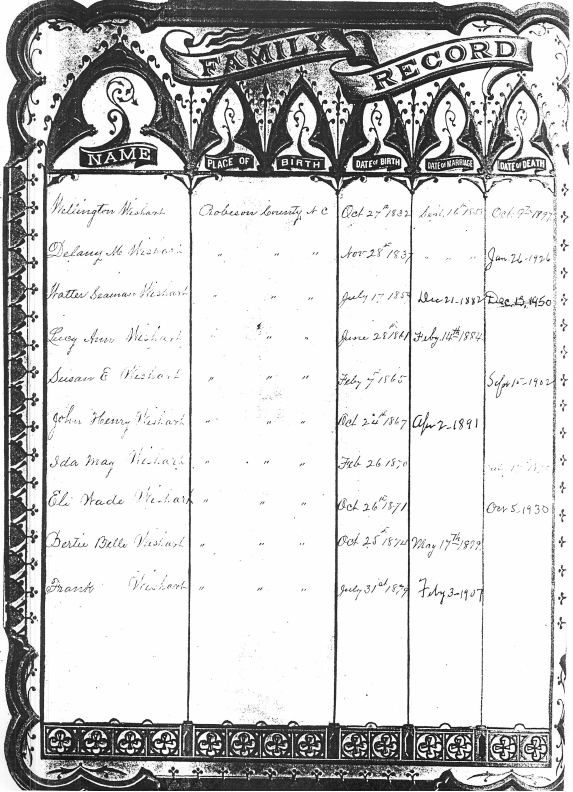 FAMILY RECORD
NAME PLACE OF BIRTH DATE OF BIRTH DATE OF MARRIAGE DATE OF DEATH
Wellington Wishart Robeson County N C Oct 27th 1832 Sept. 16th Oct. 9th 1897
Delany M Wishart " " " Nov 28th 1837 " " " Jan. 26-1926
Walter Seaman Wishart " " " July 17 Dec 21-1882 Dec. 13, 1950
Lucy Ann Wishart " " " June 28th 1861 Feby. 14th 1884
Susan E Wishart " " " Feby 7th 1865 Sept 15-1902
John Henry Wishart " " " Oct 24th 1867 Apr 2-1891
Ida May Wishart " " " Feb 26 1870
Eli Wade Wishart " " " Oct 26th 1871 5, 1930
Bertie Belle Wishart " " " Oct 25th May 17th 1899
Frank Wishart " " " July 31st 1879 Feby 3-1907